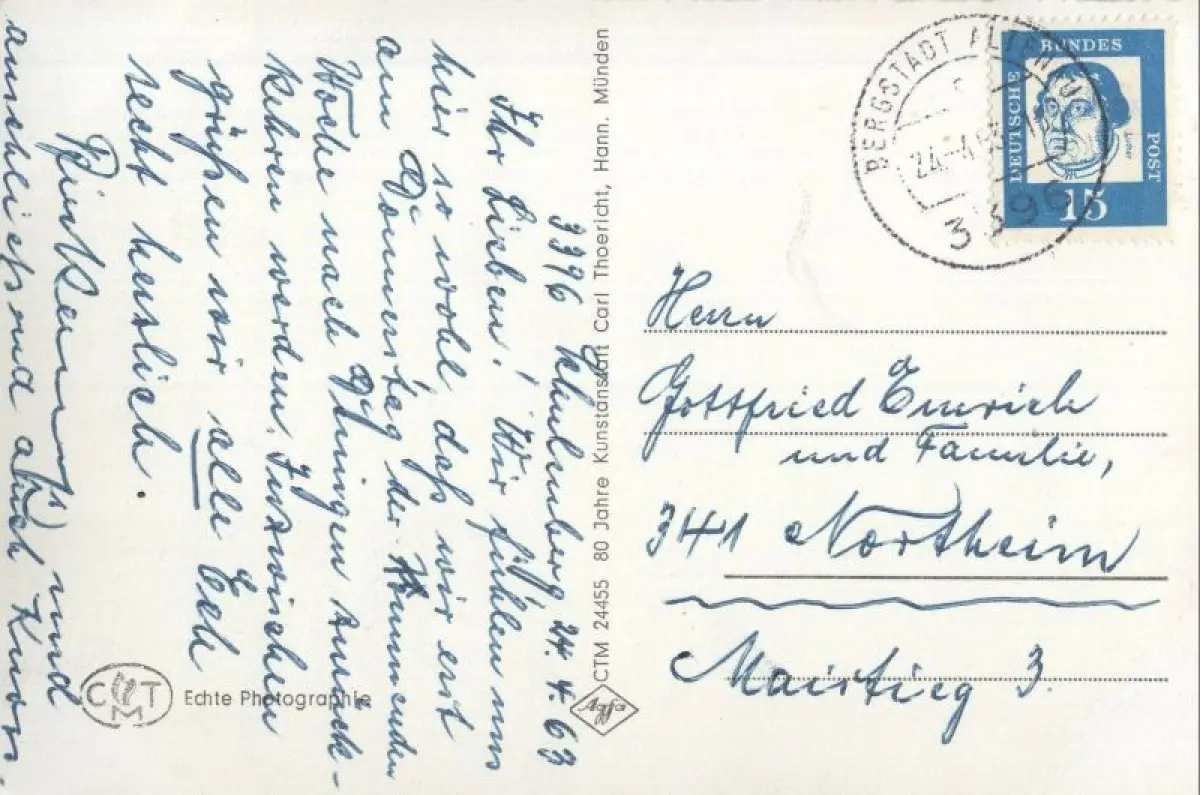 3396 Schulenberg 24. 4. 63
Ihr Lieben! Wir fühlen uns
hier so wohl, daß wir erst
am Donnerstag der kommenden
Woche nach zurück-
kehren werden. Inzwischen
grüßen wir alle Euch
recht herzlich.
und
anschließend auch
BERGSTADT ALTENAU
24.-4.63
3396
DEUTSCHE BUNDES POST
Luther
15
Herrn
Gottfried Emrich
und Familie,
341 Northeim
Maistieg 3.
CTM 24455 80 Jahre Kunstanstalt Carl Thoericht, Hann. Münden
CTM
Echte Photographie
Agfa